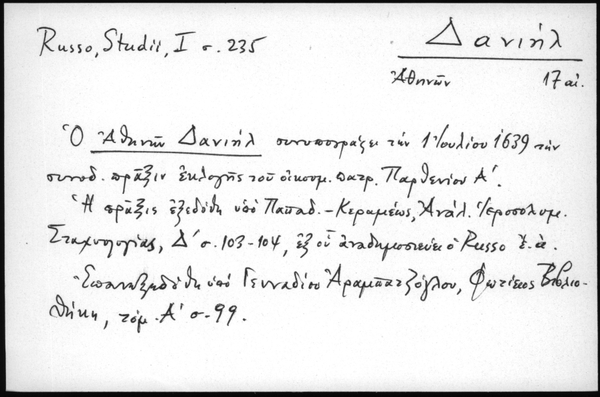 Russo, Studii, I σ. 235
Δανιήλ
Ἀθηνῶν 17 αἰ.
Ὁ Ἀθηνῶν Δανιὴλ συνυπογράφει τὴν 1 Ἰουλίου 1639 τὴν
συνοδ. πρᾶξιν ἐκλογῆς τοῦ οἰκουμ. πατρ. Παρθενίου Α΄.
Ἡ πρᾶξις ἐξεδόθη ὑπὸ Παπαδ.-Κεραμέως, Ἀνάλ. Ἱεροσολυμ.
Σταχυολογίας, Δ΄ σ. 103-104, ἐξ οὗ ἀναδημοσιεύει ὁ Russo ἔ.ἀ.
Ἐπανεξεδόθη ὑπὸ Γενναδίου Ἀραμπατζόγλου, Φωτίειος Βιβλιο-
θήκη, τόμ. Α΄ σ. 99.